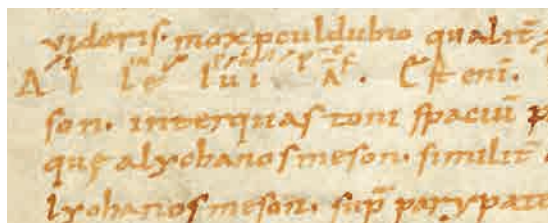 videris. mox pculdubio qualit̄
Al le lui ā. Est eni̅.
son. inter quas toni spaciū p
que a lychanos meson. similit̄
lychanos meson. sup̄ parypate